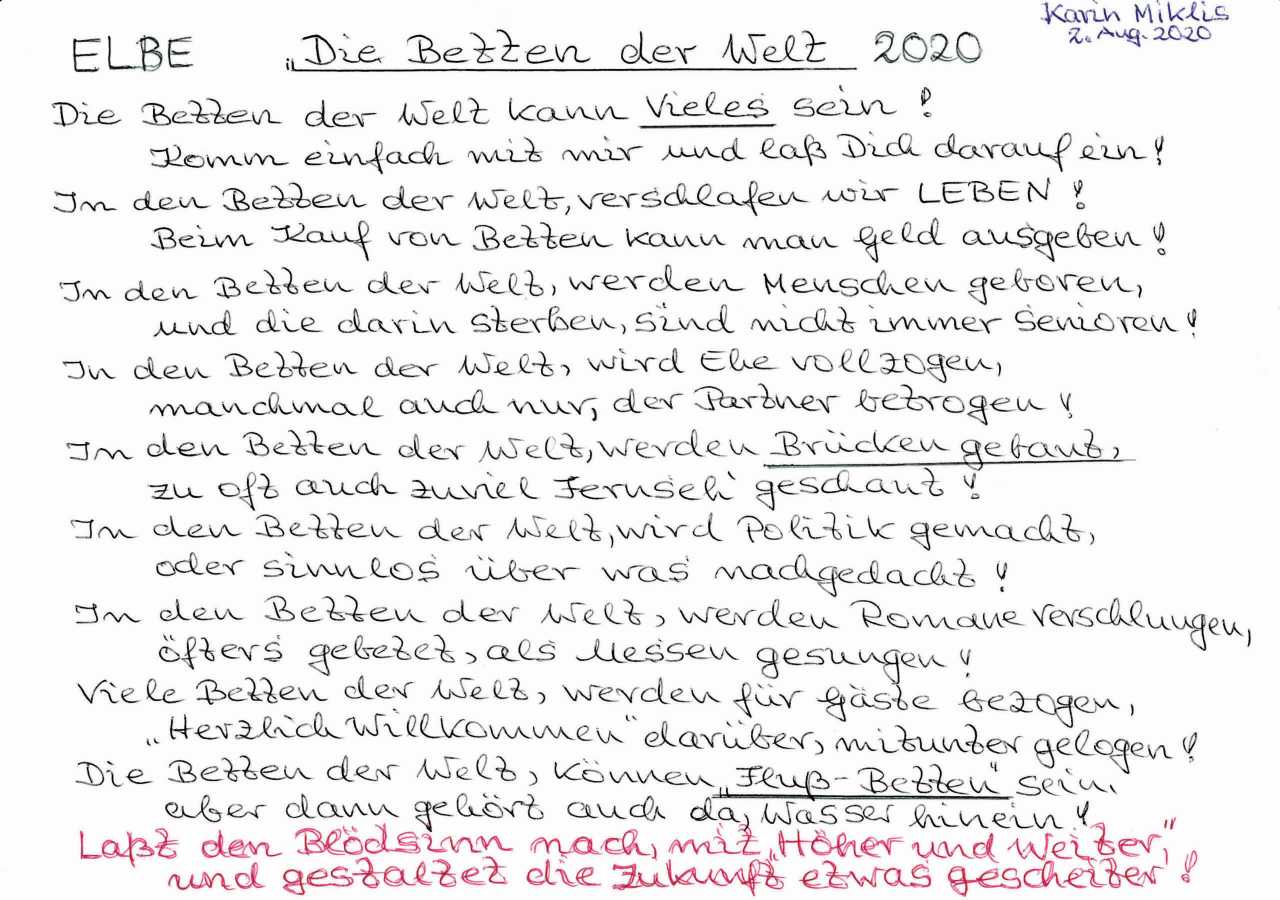 Karin Miklis
2. Aug. 2020
ELBE „Die Betten der Welt 2020
Die Betten der Welt kann Vieles sein!
Komm einfach mit mir und laß Dich darauf ein!
In den Betten der Welt, verschlafen wir LEBEN!
Beim Kauf von Betten kann man Geld ausgeben!
In den Betten der Welt, werden Menschen geboren,
und die darin sterben, sind nicht immer Senioren!
In den Betten der Welt, wird Ehe vollzogen,
manchmal auch nur, der Partner betrogen!
In den Betten der Welt, werden Brücken gebaut,
zu oft auch zuviel Fernseh' geschaut!
In den Betten der Welt, wird Politik gemacht,
oder sinnlos über was nachgedacht!
In den Betten der Welt, werden Romane verschlungen,
öfters gebetet, als Messen gesungen!
Viele Betten der Welt, werden für Gäste bezogen,
„Herzlich Willkommen" darüber, mitunter gelogen!
Die Betten der Welt, können „Fluß-Betten" sein,
aber dann gehört auch da, Wasser hinein!
Laßt den Blödsinn nach, mit „Höher und Weiter,"
und gestaltet die Zukunft etwas gescheiter"!